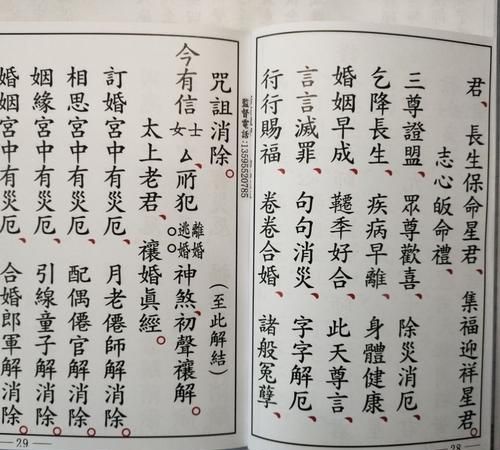 君、長生保命星君、集福迎祥星君。
志心皈命禮、
三尊證盟、眾尊歡喜、除災消厄、
乞降長生、疾病早離、身體健康、
婚姻早成、季好合、此天尊言、
言言滅罪、句句消災、字字解厄、
行行賜福、卷卷合婚、諸般冤孽、
28
監督電話:13595520785
咒詛消除。(至此解結)
今有信士女ㄙ、所犯離婚逃婚神煞、初聲禳解、
太上老君、禳婚眞經。
訂婚宮中有災厄、月老僊師解消除。
相思宮中有災厄、配偶僊官解消除。
姻緣宮中有災厄、引線童子解消除。
婚姻宮中有災厄、合婚郎軍解消除。
29